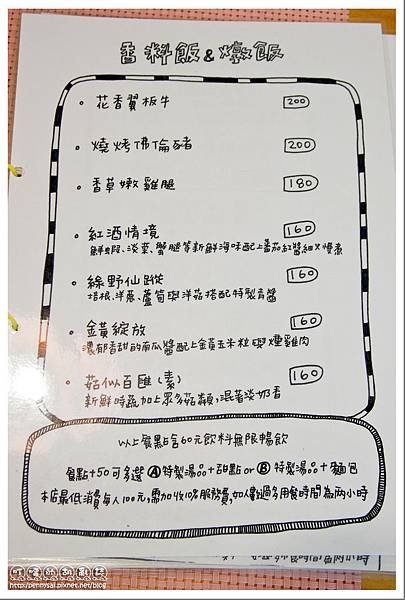 香料飯&燉飯
花香翼板牛 200
燒烤佛倫豬 200
香草嫩雞腿 180
紅酒情境 160
鮮蝦、淡菜、蟹腿等新鮮海味配上番茄紅醬細火慢煮
綠野仙蹤 160
培根、洋蔥、蘆筍與洋菇搭配特製青醬
金黃綻放 160
濃郁香甜的南瓜醬配上金黃玉米粒與燻雞肉
菇似百匯(素) 160
新鮮時蔬加上眾多菇類,混著淡奶香
以上餐點含60元飲料無限暢飲
餐點+50可多選 Ⓐ特製湯品+甜點 or Ⓑ特製湯品+麵包
本店最低消費每人100元,需加收10%服務費,如人數過多用餐時間為兩小時
http://pennysal.pixnet.net/blog